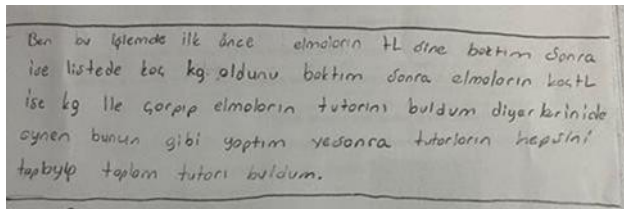 Ben bu işlemde ilk önce elmaların tL sine baktım sonra
ise listede kaç kg. oldunu baktım sonra elmaların kaçtL
ise kg ile çarpıp elmaların tutarını buldum diyarlerinide
aynen bunun gibi yaptım vesonra tutarların hepsini
toplayıp toplam tutarı buldum.